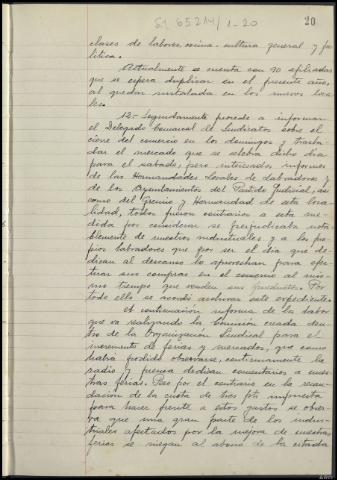 SI 65214/1-20
20
clases de labores, cocina, cultura general y po-
lítica.
Actualmente se cuenta con 90 afiliadas
que se espera duplicar en el presente año,
al quedar instalada en los nuevos loca-
les.
12.- Seguidamente procede a informar
el Delegado Comarcal de Sindicatos sobre el
cierre del comercio en los domingos y trasla-
dar el mercado que se celebra dicho día
para el sabado, pero interesados informes
de las Hermandades Locales de Labradores y
de los Ayuntamientos del Partido Judicial, así
como del Gremio y Hermandad de esta lo-
calidad, todos fueron contrarios a esta me-
dida por considerar se perjudicaba nota-
blemente de nuestros industriales y a los pro-
pios labradores que por ser el día que de-
dican al descanso lo aprovechan para efec-
tuar sus compras en el comercio al mis-
mo tiempo que venden sus productos. Por
todo ello se acordó archivar este expediente.
A continuación informa de la labor
que va realizando la Comisión creada den-
tro de la Organización Sindical para el
incremento de ferias y mercados, que como
habrá podido observarse, continuamente la
radio y prensa dedican comentarios a nues-
tras ferias. Pero por el contrario en la recau-
dación de la cuota de tres pts impuesta
para hacer frente a estos gastos se obser-
va que una gran parte de los indus-
triales afectados por la mejora de nuestras
ferias se niegan al abono de la citada